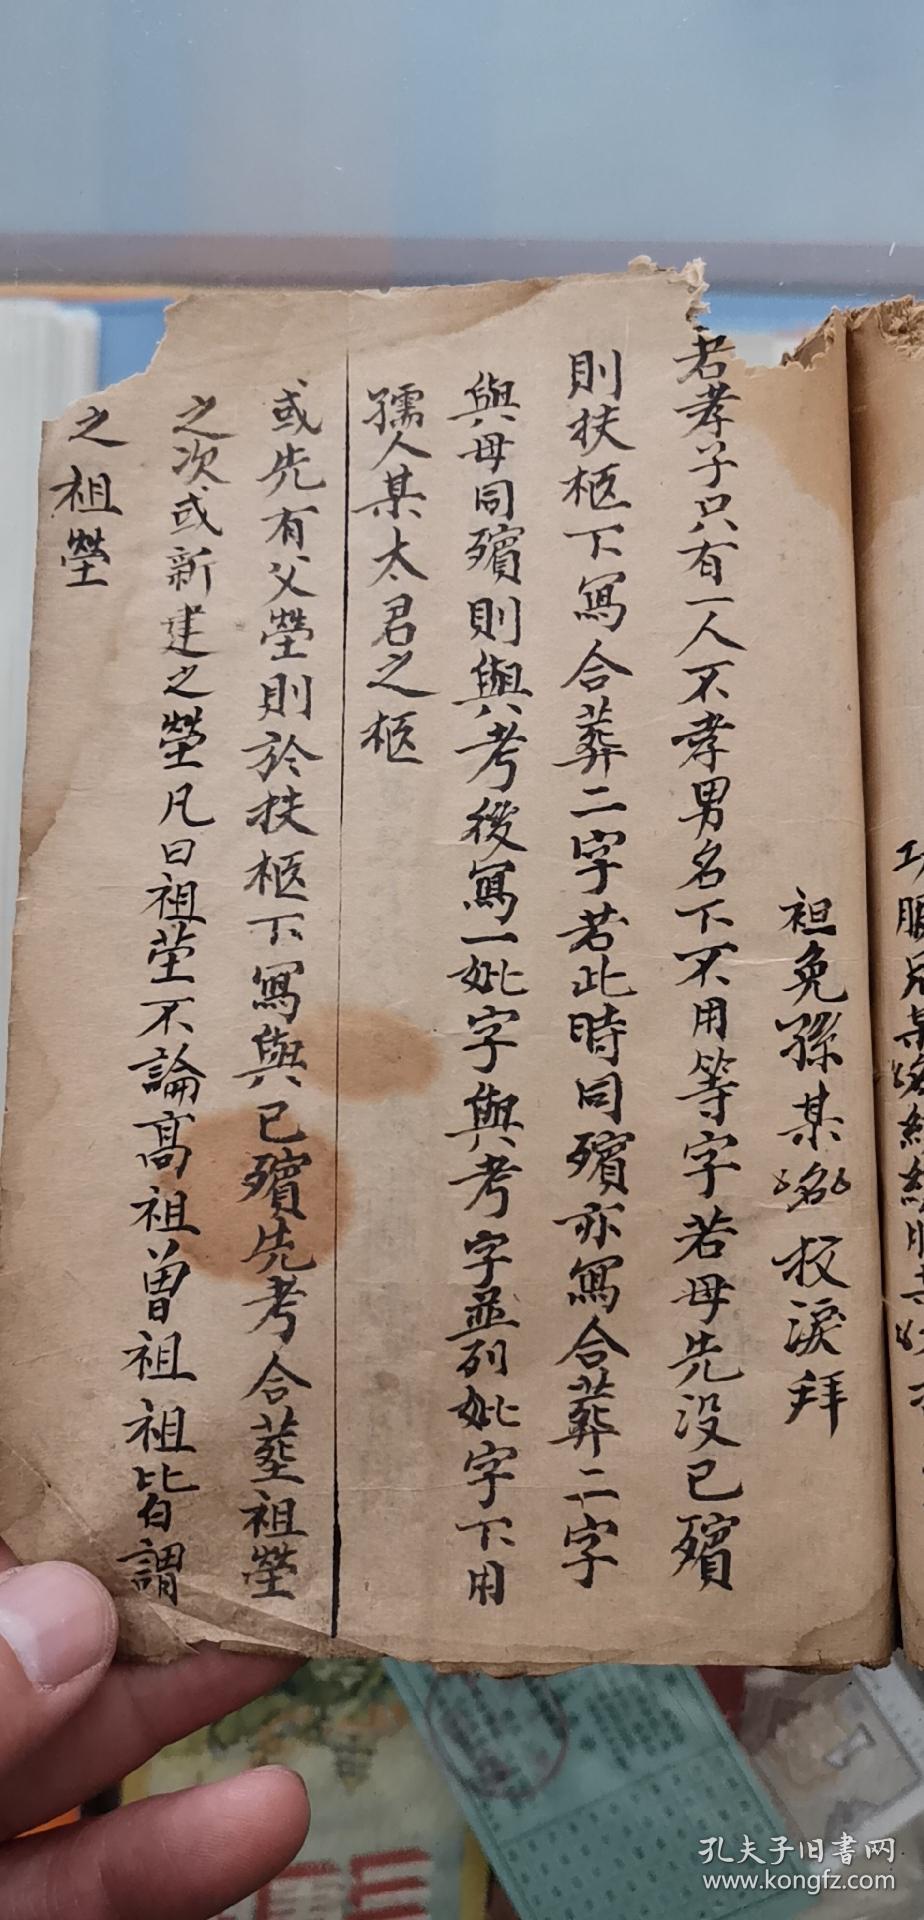 功服兄某
袒免孫某名抆淚拜
若孝子只有一人不孝男名下不用等字若母先没已殯
則扶柩下寫合葬二字若此時同殯亦寫合葬二字
與母同殯則與考後寫一妣字與考字並列妣字下用
孺人某太君之柩
或先有父塋則於扶柩下寫與已殯先考合葬祖塋
之次或新建之塋凡曰祖茔不論高祖曾祖祖皆謂
之祖塋
孔夫子旧書网
www.kongfz.com